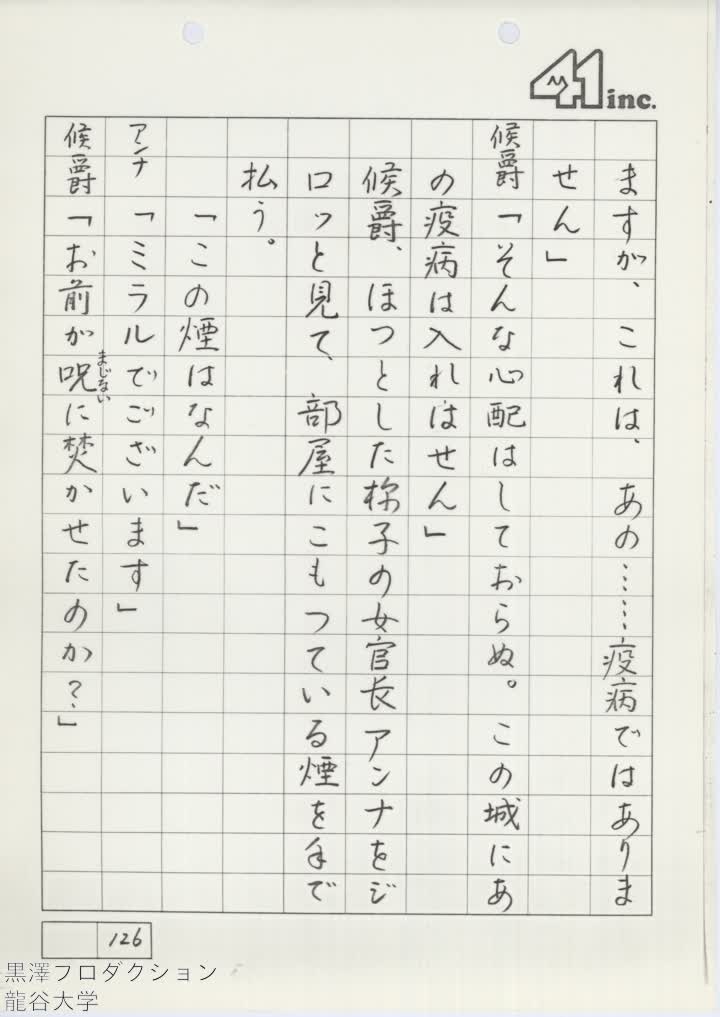 41 inc.
ますが、これは、あの……疫病ではありま
せん」
候爵「そんな心配はしておらぬ。この城にあ
の疫病は入れはせん」
候爵、ほっとした様子の女官長アンナをジ
ロッと見て、部屋にこもっている煙を手で
払う。
「この煙はなんだ」
アンナ「ミラルでございます」
候爵「お前が呪に焚かせたのか?」
まじない
126
黒澤プロダクション
龍谷大学